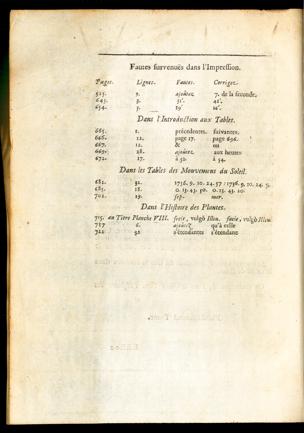 Fautes survenuës dans l'Impression.
Pages. Lignes. Fautes. Corrigez.
525. 9. ajoûtez 7. de la seconde.
645. 3. 51'. 41'.
654. 5. 19' 16'.
Dans l'Introduction aux Tables.
665. 1. précedentes. suivantes.
666. 12. page 17. page 696.
667. 12. & ou
669. 28. ajoûtez aux heures
672. 17. à 52. à 54.
Dans les Tables des Mouvemens du Soleil.
682. 32. 1736. 9. 10. 24. 57 : 1736. 9. 10. 24.
685. 18. 0. 13. 43. 0. 13. 43. 10.
702. 19. sep. mer.
Dans l'Histoire des Plantes.
715. au Titre Planche VIII. ficie, vulgò Illeu. ficie, vulgò Illeu
717 6. ajoûtez qu'à celle
722 32 s'étendantes s'étendans